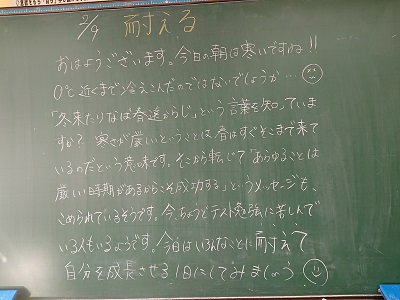 2/9 耐える
おはようございます。今日の朝は寒いですね!!
0℃近くまで冷えこんだのではないでしょうか…
「冬来たりなば春遠からじ」という言葉を知っていま
すか? 寒さが厳しいということは春はすぐそこまで来て
いるのだという意味です。そこから転じて「あらゆることは
厳しい時期があるからこそ成功する」というメッセージも、
こめられているそうです。今、ちょうどテスト勉強に苦しんで
いる人もいるようです。今日はいろんなことに耐えて
自分を成長させる1日にしてみましょう